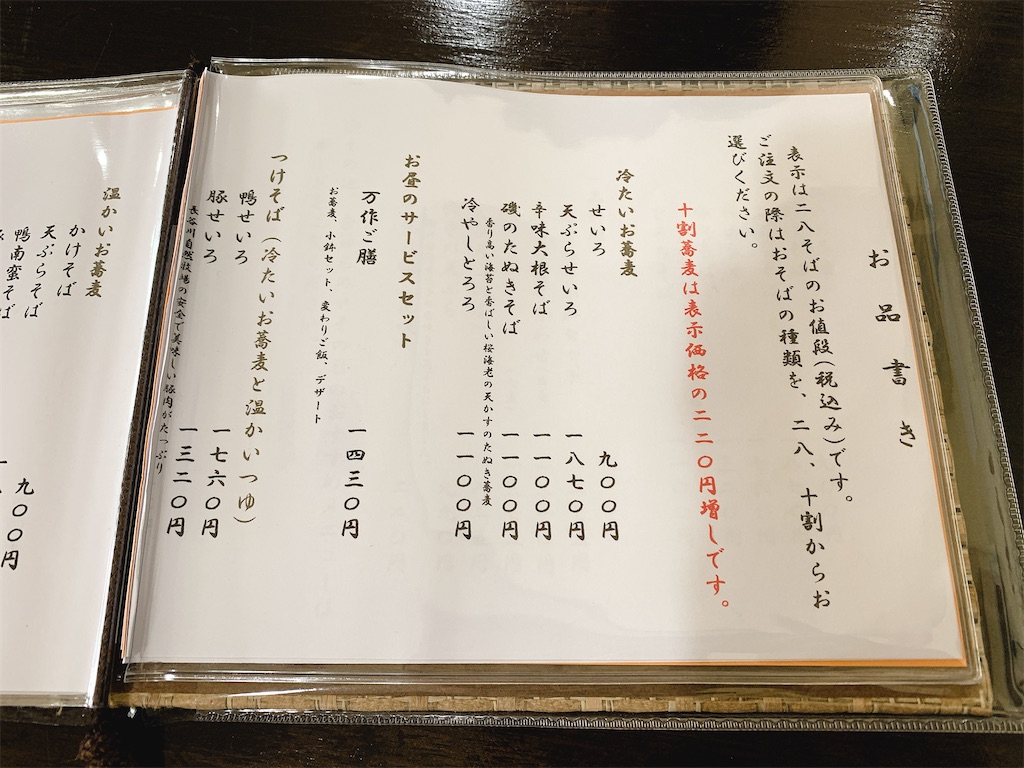 お品書き
表示は二八そばのお値段(税込み)です。
ご注文の際はおそばの種類を、二八、十割からお
選びください。
十割蕎麦は表示価格の二二〇円増しです。
冷たいお蕎麦
せいろ 九〇〇円
天ぷらせいろ 一八七〇円
辛味大根そば 一一〇〇円
磯のたぬきそば 一一〇〇円
香り高い海苔と香ばしい桜海老の天かすのたぬき蕎麦
冷やしとろろ 一一〇〇円
お昼のサービスセット
万作ご膳 一四三〇円
お蕎麦、小鉢セット、変わりご飯、デザート
つけそば(冷たいお蕎麦と温かいつゆ)
鴨せいろ 一七六〇円
豚せいろ 一三二〇円
長谷川自然牧場の安全で美味しい豚肉がたっぷり
温かいお蕎麦
かけそば 九〇〇円
天ぷらそば
鴨南蛮そば